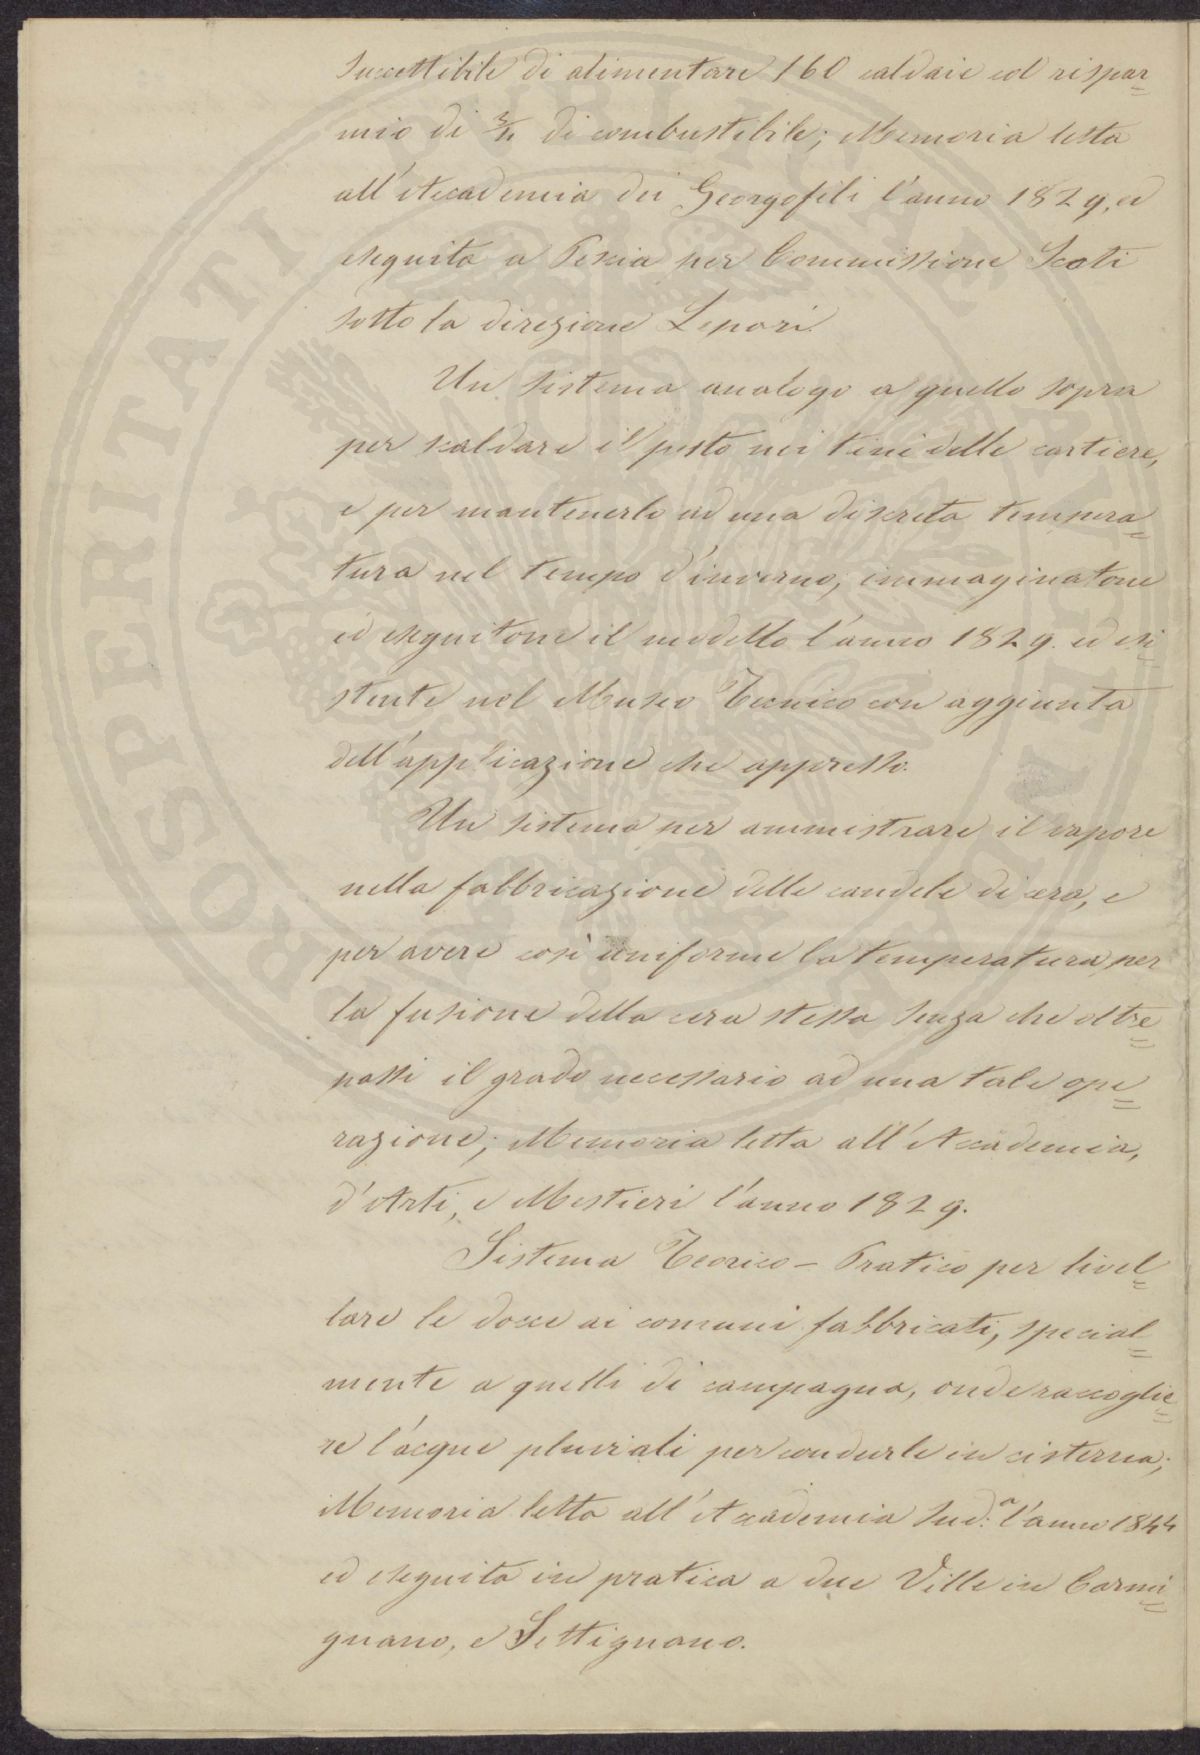 Suscettibile di alimentare 160 caldaie col rispar=
mio di di combustibile; Memoria letta
all'Accademia dei Georgofili l'anno 1829, ed
eseguita a Pescia per Commissione Scoti
sotto la direzione
Un sistema analogo a quello sopra
per scaldare il pesto nei tini delle cartiere,
e per mantenerlo ad una discreta tempera=
tura nel tempo d'inverno, immaginatone
ed eseguitone il modello l'anno 1829. ed esi=
stente nel Museo Tecnico con aggiunta
dell'applicazione che appresso.
Un sistema per ammistrare il vapore
nella fabbricazione delle candele di cera, e
per avere così uniforme la temperatura per
la fusione della cera stessa senza che oltre=
passi il grado necessario ad una tale ope=
razione; Memoria letta all'Accademia,
d'Arti, e Mestieri l'anno 1829.
Sistema Teorico - Pratico per livel=
lare le docce ai comuni fabbricati, special=
mente a quelli di campagna, onde raccoglie=
re l'acque pluviali per condurle in cisterna;
Memoria letta all'Accademia Sud.ª l'anno 1844
ed eseguita in pratica a due Ville in Carmi=
gnano, e Settignano.
PROSPERITATI PUBLICAE AUGENDAE